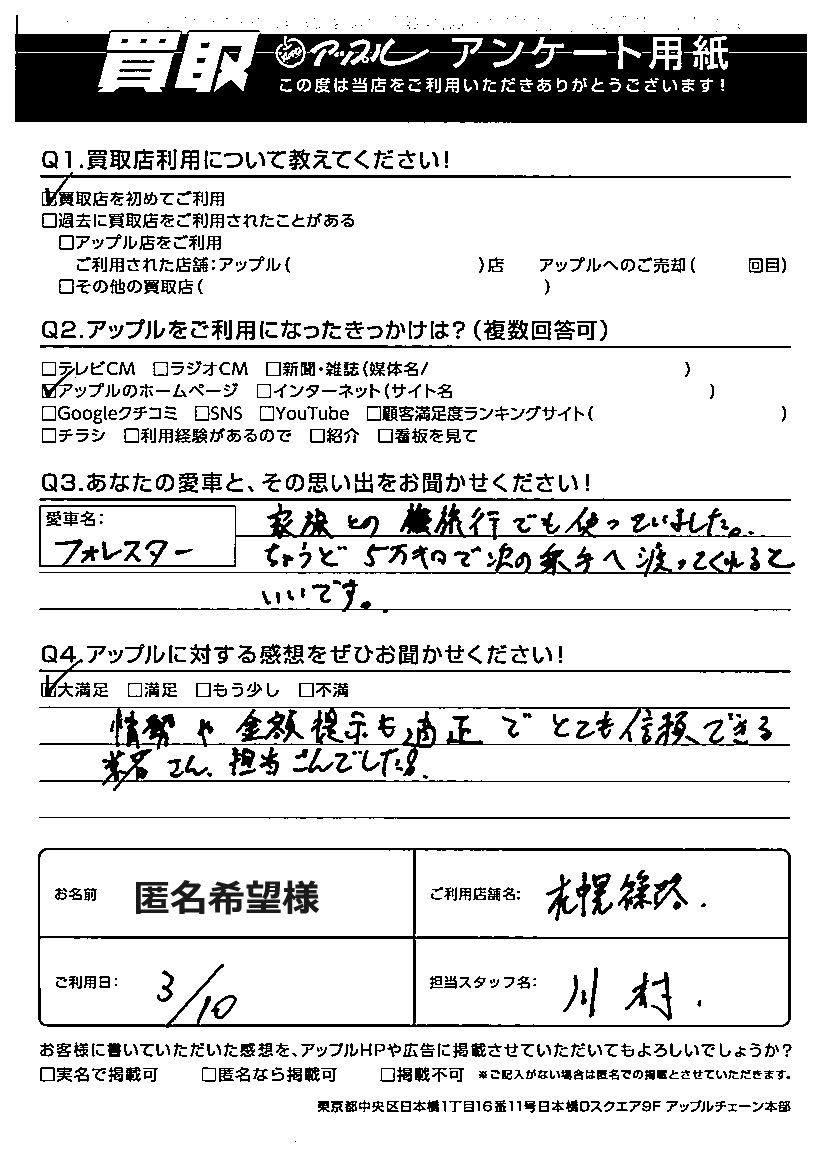 買取 アップル アンケート用紙
この度は当店をご利用いただきありがとうございます!
Q1.買取店利用について教えてください!
☑買取店を初めてご利用
□過去に買取店をご利用されたことがある
□アップル店をご利用
ご利用された店舗:アップル( )店 アップルへのご売却( 回目)
□その他の買取店( )
Q2.アップルをご利用になったきっかけは?(複数回答可)
□テレビCM □ラジオCM □新聞・雑誌(媒体名/ )
☑アップルのホームページ □インターネット(サイト名 )
□Googleクチコミ □SNS □YouTube □顧客満足度ランキングサイト( )
□チラシ □利用経験があるので □紹介 □看板を見て
Q3.あなたの愛車と、その思い出をお聞かせください!
愛車名:
フォレスター
家族との旅行でも使っていました。
ちょうど5万キロで次の乗手へ渡ってくれると
いいです。
Q4.アップルに対する感想をぜひお聞かせください!
☑大満足 □満足 □もう少し □不満
情勢や金額提示も適正でとても信頼できる
業者さん、担当さんでした。
お名前 匿名希望様 ご利用店舗名: 札幌篠路.
ご利用日: 3/10 担当スタッフ名: 川村.
お客様に書いていただいた感想を、アップルHPや広告に掲載させていただいてもよろしいでしょうか?
□実名で掲載可 □匿名なら掲載可 □掲載不可 ※ご記入がない場合は匿名での掲載とさせていただきます。
東京都中央区日本橋1丁目16番11号日本橋Dスクエア9F アップルチェーン本部